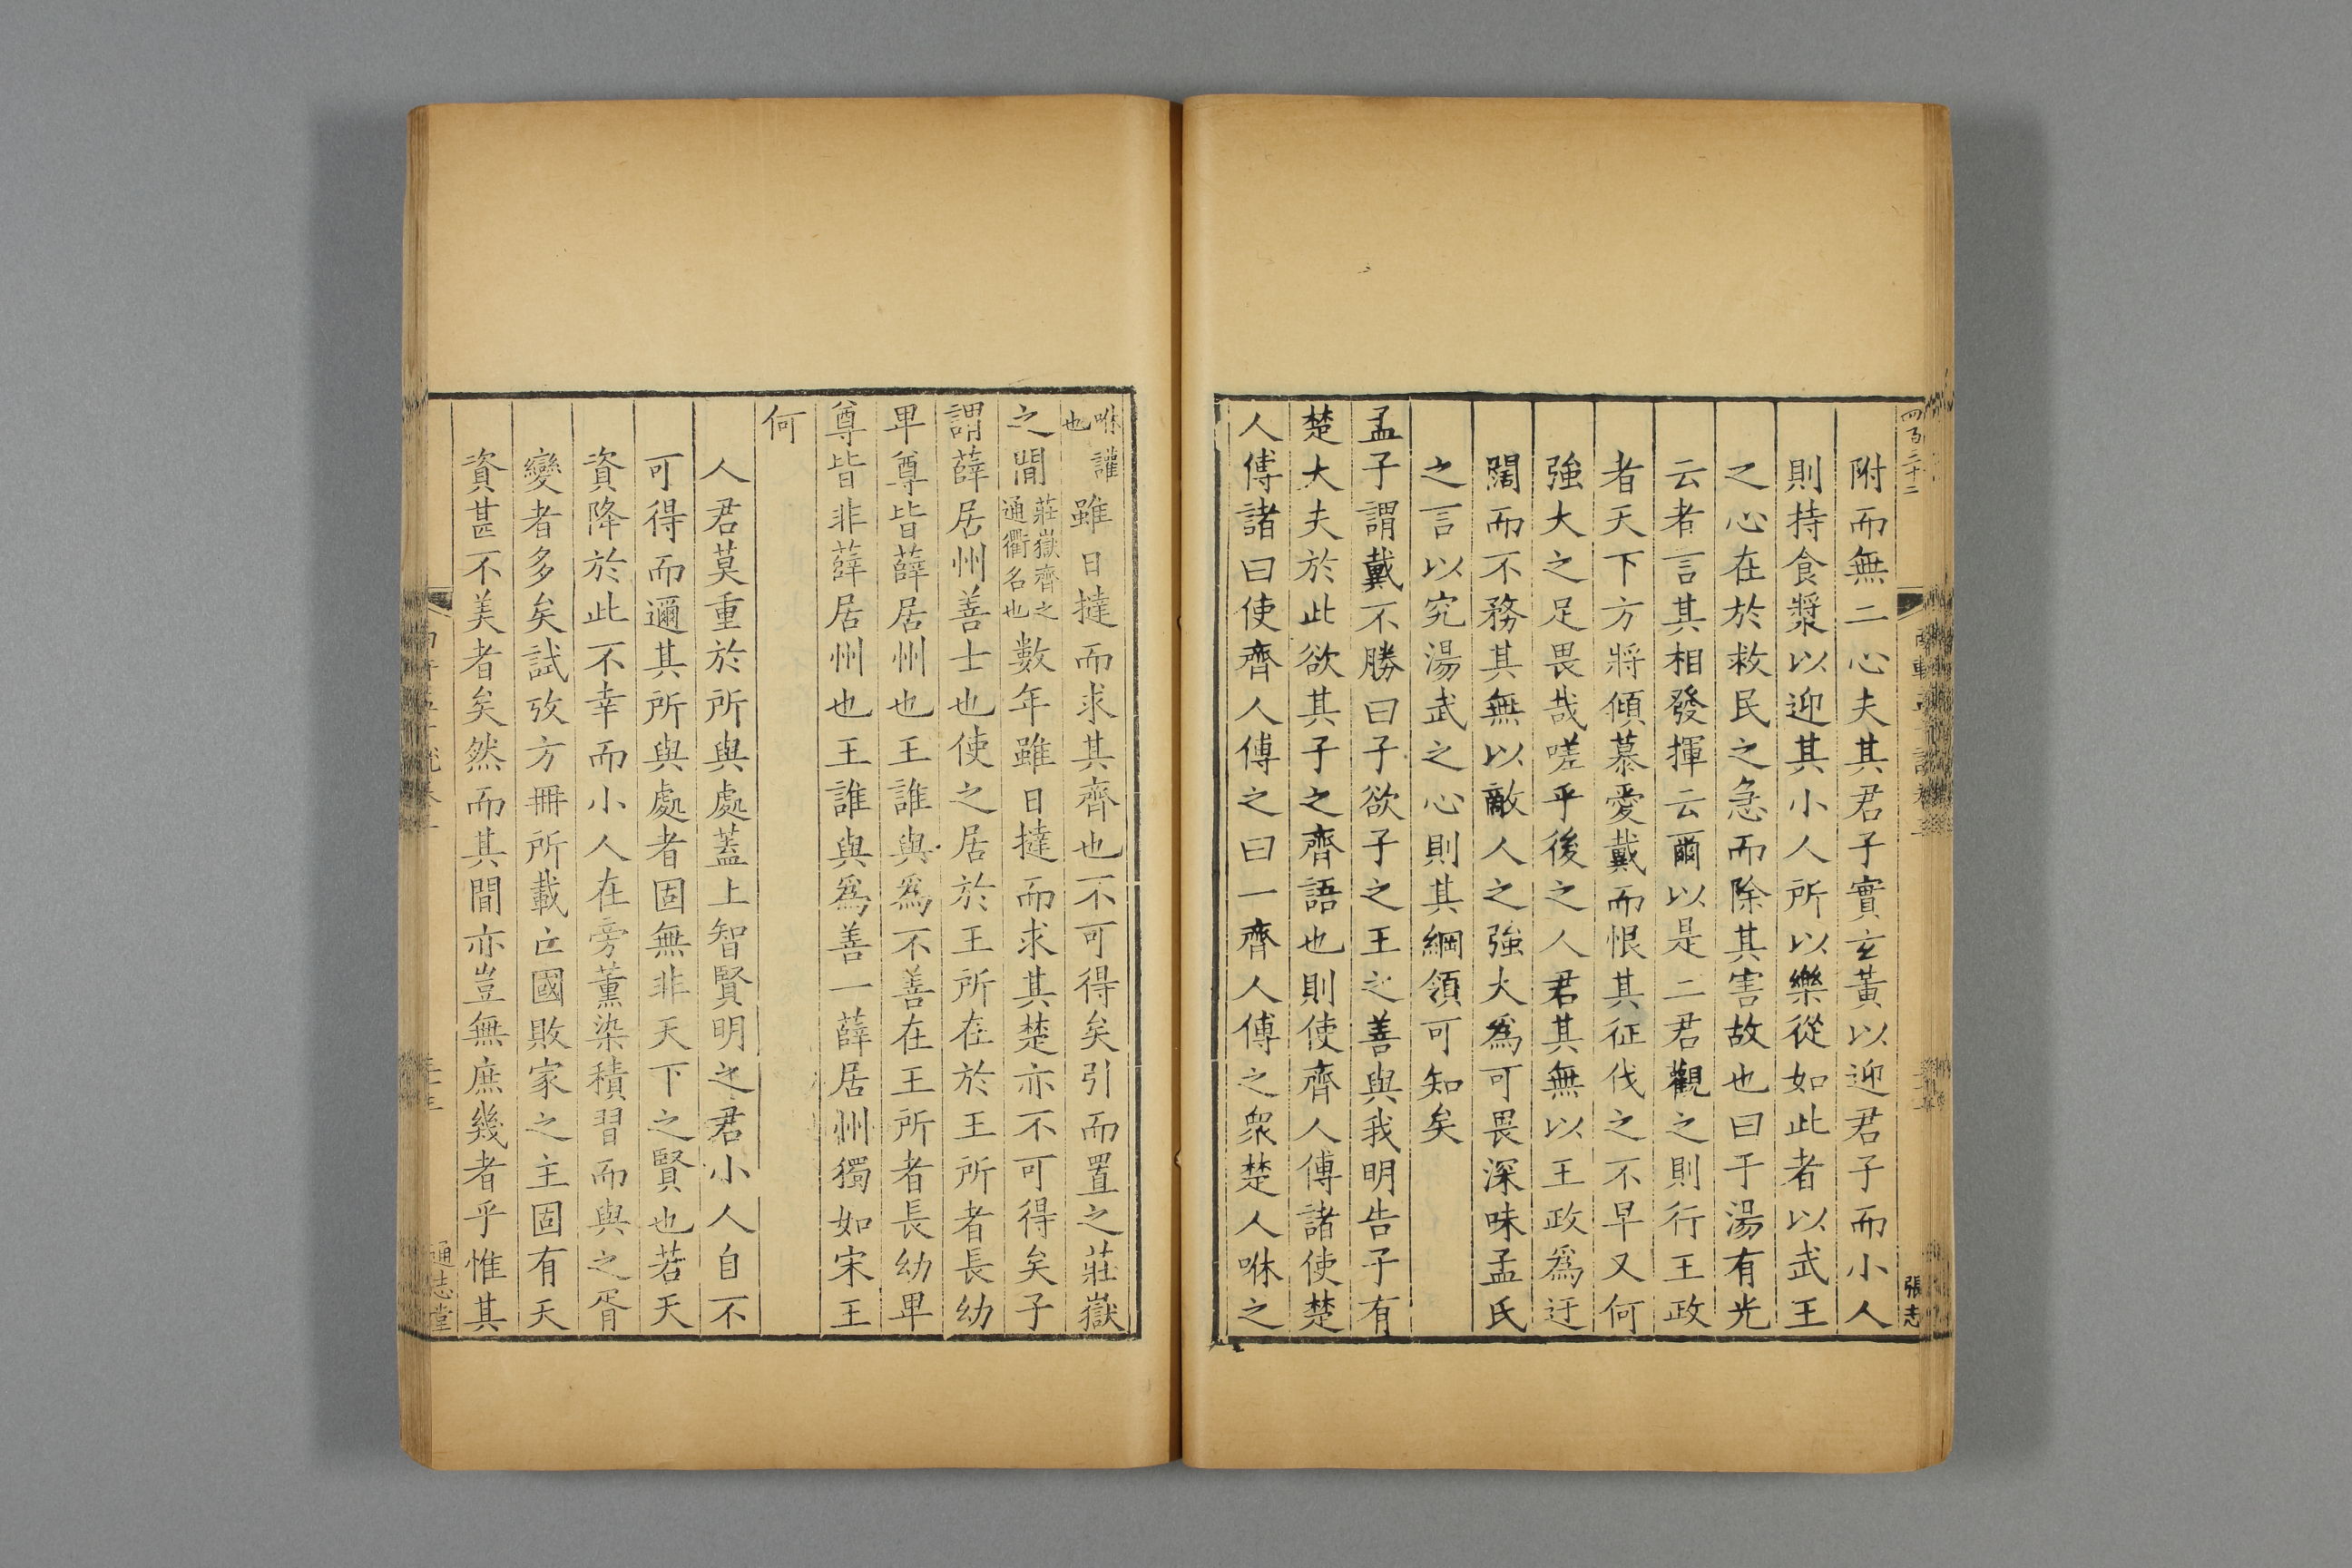 四百三十二
張志
附而無二心夫其君子實玄黃以迎君子而小人
則持食漿以迎其小人所以樂從如此者以武王
之心在於救民之急而除其害故也曰于湯有光
云者言其相發揮云爾以是二君觀之則行王政
者天下方將傾慕愛戴而恨其征伐之不早又何
強大之足畏哉嗟乎後之人君其無以王政爲迂
闊而不務其無以敵人之強大爲可畏深味孟氏
之言以究湯武之心則其綱領可知矣
孟子謂戴不勝曰子欲子之王之善與我明告子有
楚大夫於此欲其子之齊語也則使齊人傅諸使楚
人傅諸曰使齊人傅之曰一齊人傅之衆楚人咻之
咻讙也雖日撻而求其齊也不可得矣引而置之莊嶽
之閒莊嶽齊之通衢名也數年雖日撻而求其楚亦不可得矣子
謂薛居州善士也使之居於王所在於王所者長幼
卑尊皆薛居州也王誰與爲不善在王所者長幼卑
尊皆非薛居州也王誰與爲善一薛居州獨如宋王
何
人君莫重於所與處蓋上智賢明之君小人自不
可得而邇其所與處者固無非天下之賢也若天
資降於此不幸而小人在旁薰染積習而與之胥
變者多矣試攷方冊所載亡國敗家之主固有天
資甚不美者矣然而其間亦豈無庶幾者乎惟其
通志堂